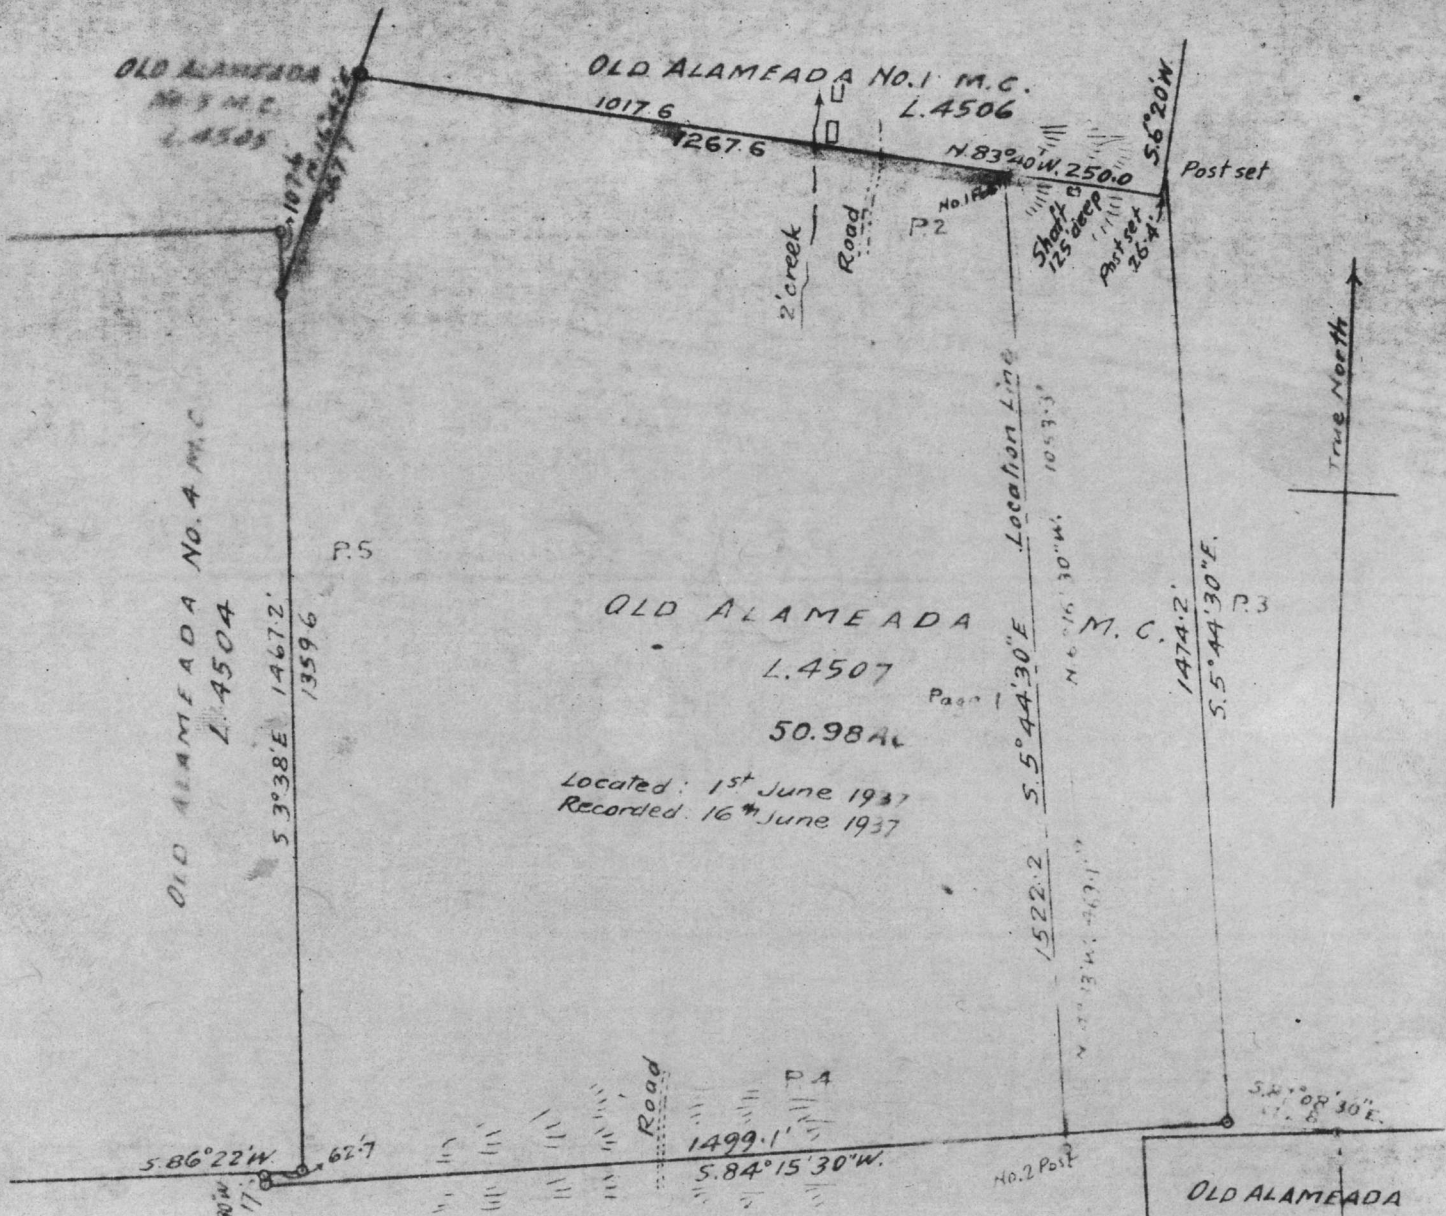 OLD ALAMEADA
No. 3 M.C.
L.4505
107.6
OLD ALAMEADA No.1 M.C.
L.4506
1017.6
1267.6
N.83°40'W. 250.0
S.6°20'W
Post set
No.1 Post
Shaft
125' deep
Post set
26.4'
2' creek
Road
P.2
True North
Location Line
1053.3'
OLD ALAMEADA No. 4 M.C.
L.4504
S 3°38'E 1467.2'
1359.6
P.5
OLD ALAMEADA M.C.
L.4507
Page 1
50.98 Ac
Located: 1st June 1937
Recorded: 16th June 1937
1522.2 S.5°44'30"E
1474.2'
S.5°44'30"E.
P.3
P.4
Road
1499.1'
S.84°15'30"W.
S.86°22'W.
62.7
17
No.2 Post
08'30"E.
OLD ALAMEADA